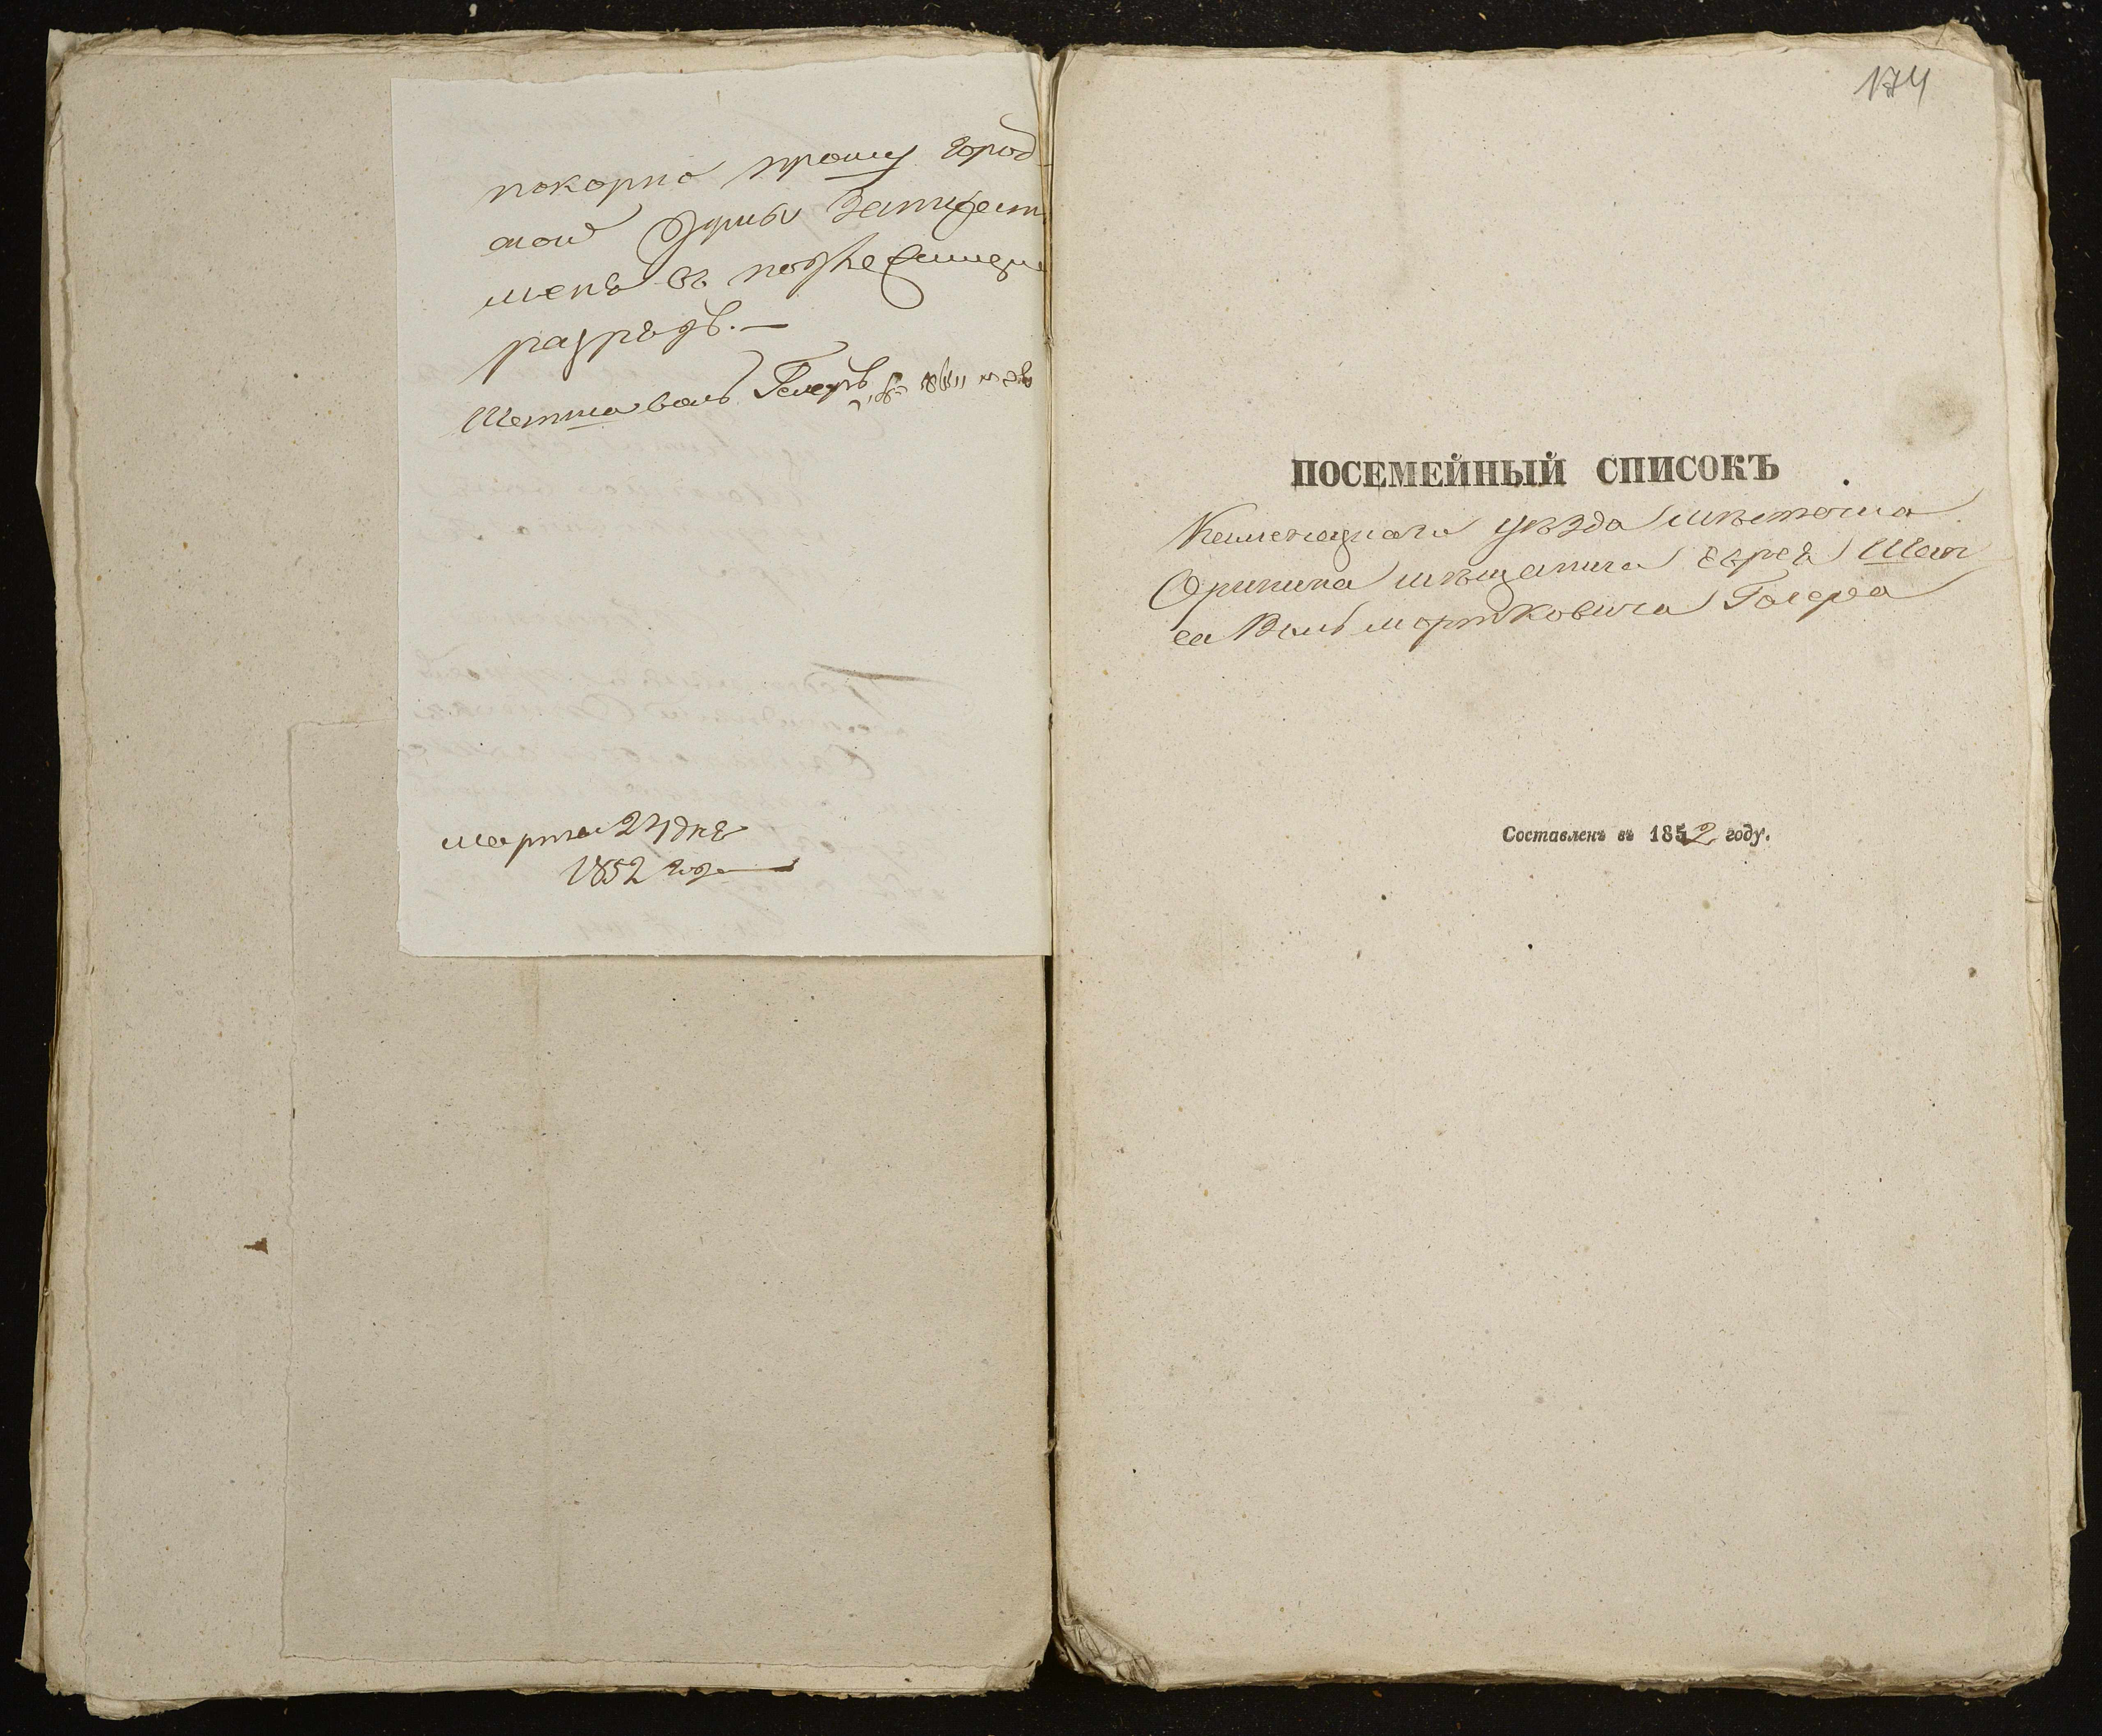 покорно прошу город
ской Думы Зачислит
меня въ надлежащи
разрядъ.—
Шепшеваль Гелеръ
марта 24 дня
1852 года
174
ПОСЕМЕЙНЫЙ СПИСОКЪ
Каменецкаго уѣзда мѣстечка
Оринина мѣщанина еврея Шап
са Вель мортковича Гелера
Составленъ въ 1852 году.